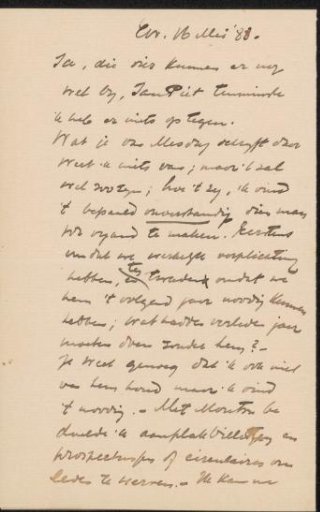 16 Mei '88.
Ja, die vier kunnen er nog
wel by, Jan Piet tenminste
ik heb er niets op tegen.
Wat je van Mesdag schryft daar
weet ik niets van; maar 't zal
wel zoo zyn; hoe 't zy, ik vind
't bepaald onverstandig dien man
tot vyand te maken. Eerstens
omdat we werkelyk verplichting
hebben, ten tweeden omdat we
hem 't volgend jaar noodig kunnen
hebben; wat hadden verleden jaar
moeten doen zonder hem? -
Je weet genoeg dat ik ook niet
van hem houd maar ik vind
't noodig. - Met Mouton be
duelde ik aanplakbilletten en
prospectussen of circulaires om
leden te werven. - Ik kan